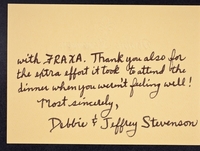 with FRAXA. Thank you also for
the extra effort it took to attend the
dinner when you weren't feeling well!
Most sincerely,
Debbie & Jeffrey Stevenson